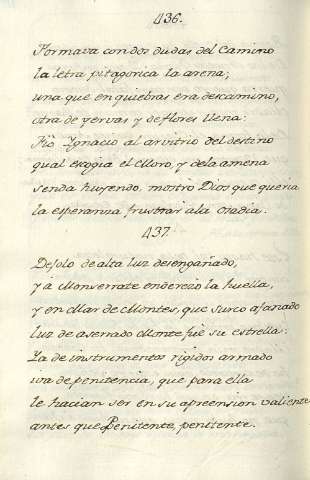 436.
Formava con dos dudas del Camino
la letra pitagorica la arena;
una que en quiebras era descamino,
otra de yervas y de flores llena:
Fió Ygnacio al arvitrio del destino
qual escogia el Moro, y dela amena
senda huyendo, mostró Dios que queria
la esperanza frustrar ala osadia.
437.
Dejolo de alta luz desengañado,
y á Monserrate enderezó la huella,
y en Mar de Montes, que surco afanado
luz de aserrado Monte fue su estrella:
Ya de instrumentos rigidos armado
iva de penitencia, que para ella
le hacian ser en su apreension valiente
antes que Penitente, penitente.